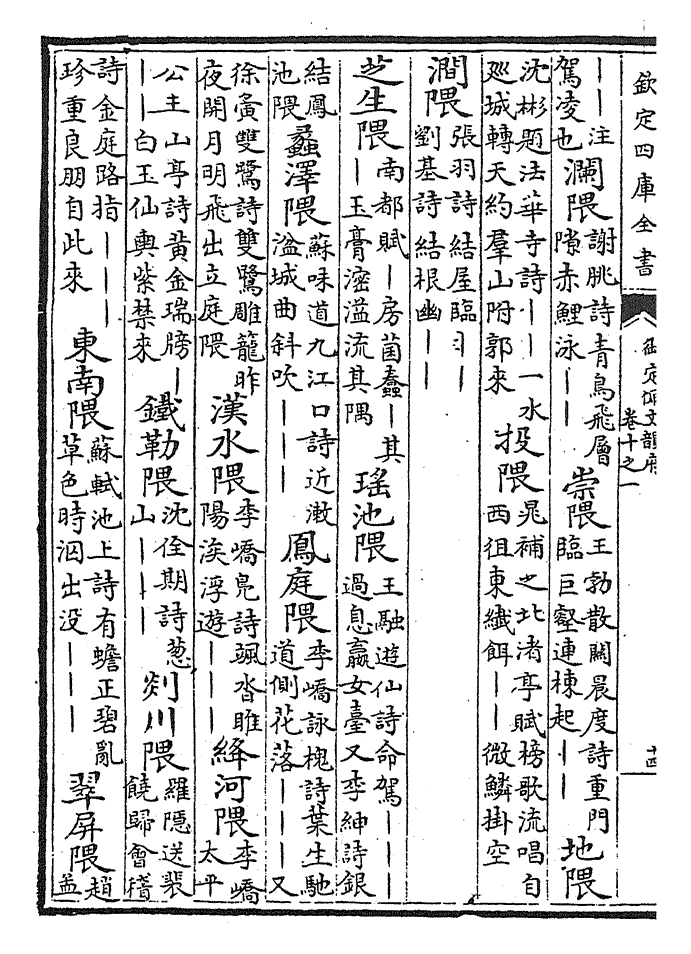 欽定四庫全書
御定佩文韻府
卷十之一
十四
｜｜注
駕凌也
瀾隈
謝朓詩青鳥飛層
隙赤鯉泳｜｜
崇隈
王勃散關晨度詩重門
臨巨壑連棟起｜｜
地隈
沈彬題法華寺詩｜｜一水
廵城轉天約羣山附郭來
投隈
晁補之北渚亭賦榜歌流唱自
西徂東纖餌｜｜微鱗掛空
澗隈
張羽詩結屋臨｜｜
劉基詩結根幽｜｜
芝生隈
南都賦｜房菌蠢｜其
｜玉膏滵溢流其隅
瑤池隈
王融遊仙詩命駕｜｜｜
過息嬴女臺又李紳詩銀
結鳳
池隈
蠡澤隈
蘇味道九江口詩近漱
湓城曲斜吹｜｜｜
鳳庭隈
李嶠詠槐詩葉生馳
道側花落｜｜｜又
徐夤雙鷺詩雙鷺雕籠昨
夜開月明飛出立庭隈
漢水隈
李嶠鳧詩颯沓睢
陽涘浮遊｜｜｜
絳河隈
李嶠
太平
公主山亭詩黃金瑞牓｜
｜｜白玉仙輿紫禁來
鐵勒隈
沈佺期詩葱
山｜｜｜
剡川隈
羅隱送裴
饒歸會稽
詩金庭路指｜｜｜
珍重良朋自此來
東南隈
蘇軾池上詩有蟾正碧亂
草色時泅出没｜｜｜
翠屏隈
趙
孟